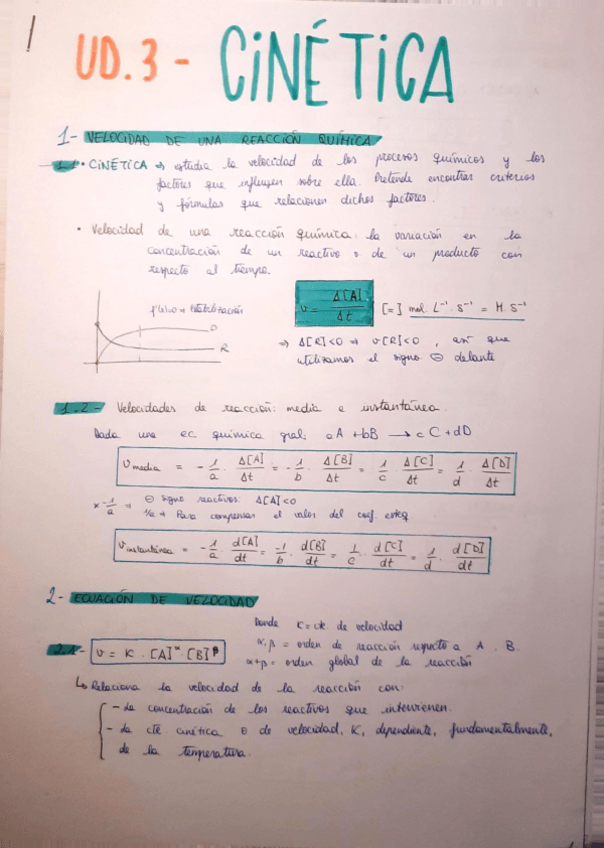 1
UD.3 - CiNÉTiCA
1- VELOCIDAD DE UNA REACCIÓN QUÍMICA
1.1• CiNÉTiCA ⇒ estudia la velocidad de los procesos químicos y los
factores que influyen sobre ella. Pretende encontrar criterios
y fórmulas que relacionen dichos factores.
• Velocidad de una reacción química: la variación en la
concentración de un reactivo o de un producto con
respecto al tiempo.
v = Δ[A]/Δt [=] mol·L⁻¹·s⁻¹ = M·s⁻¹
R
⇒ Δ[R]<0 ⇒ v[R]<0, así que
utilizamos el signo ⊖ delante
1.2- Velocidades de reacción: media e instantánea.
Dada una ec química gral: aA + bB → cC + dD
Vmedia = -1/a · Δ[A]/Δt = -1/b · Δ[B]/Δt = 1/c · Δ[C]/Δt = 1/d · Δ[D]/Δt
* -1/a ⇒ ⊖ signo reactivos: Δ[A]<0
1/a → Para compensar el valor del coef. esteq
Vinstantánea = -1/a · d[A]/dt = -1/b · d[B]/dt = 1/c · d[C]/dt = 1/d · d[D]/dt
2- ECUACIÓN DE VELOCIDAD
Donde K = cte de velocidad
2.1- v = K · [A]^α · [B]^β
α, β = orden de reacción respecto a A . B.
α+β = orden global de la reacción
↳ Relaciona la velocidad de la reacción con:
- La concentración de los reactivos que intervienen.
- La cte cinética o de velocidad, K, dependiente, fundamentalmente,
de la temperatura.